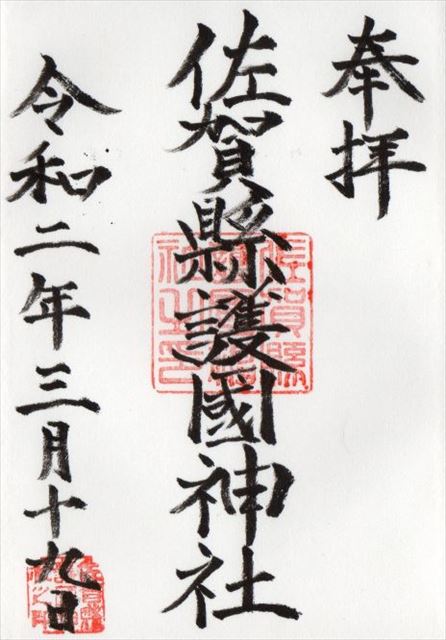 奉拝
佐賀縣護國神社
令和二年三月十九日